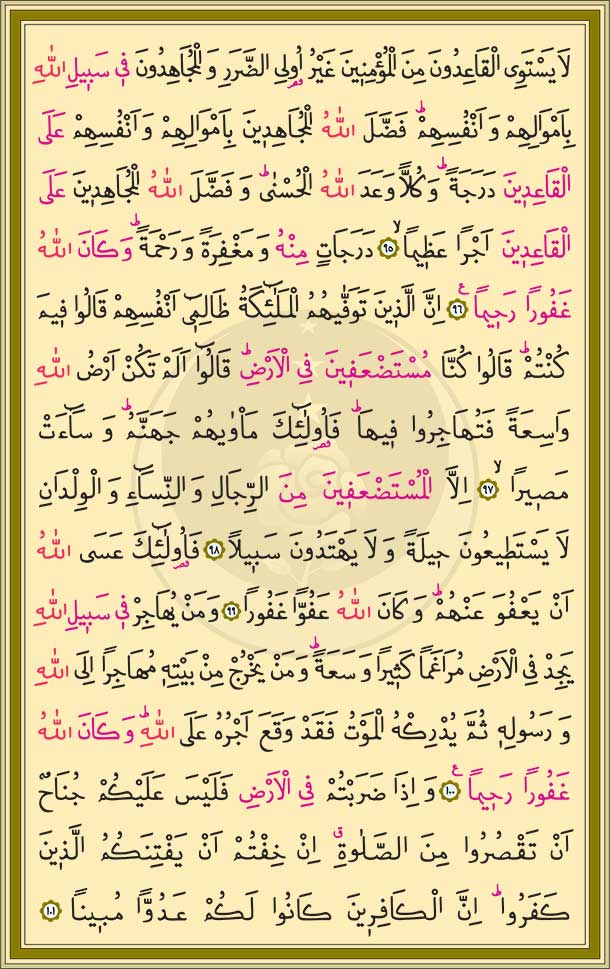 لَا يَسْتَوِى الْقَاعِدُونَ مِنَ الْمُؤْمِنِينَ غَيْرُ اُولِى الضَّرَرِ وَ الْمُجَاهِدُونَ فِى سَبِيلِ اللّٰهِ
بِاَمْوَالِهِمْ وَ اَنْفُسِهِمْۜ فَضَّلَ اللّٰهُ الْمُجَاهِدِينَ بِاَمْوَالِهِمْ وَ اَنْفُسِهِمْ عَلَى
الْقَاعِدِينَ دَرَجَةًۜ وَ كُلًّا وَعَدَ اللّٰهُ الْحُسْنٰىۜ وَ فَضَّلَ اللّٰهُ الْمُجَاهِدِينَ عَلَى
الْقَاعِدِينَ اَجْرًا عَظِيمًاۙ ﴿٩٥﴾ دَرَجَاتٍ مِنْهُ وَ مَغْفِرَةً وَ رَحْمَةًۜ وَ كَانَ اللّٰهُ
غَفُورًا رَحِيمًاع ﴿٩٦﴾ اِنَّ الَّذِينَ تَوَفّٰيهُمُ الْمَلٰٓئِكَةُ ظَالِمِٓى اَنْفُسِهِمْ قَالُوا فِيمَ
كُنْتُمْۜ قَالُوا كُنَّا مُسْتَضْعَفِينَ فِى الْاَرْضِۜ قَالُٓوا اَلَمْ تَكُنْ اَرْضُ اللّٰهِ
وَاسِعَةً فَتُهَاجِرُوا فِيهَاۜ فَاُولٰٓئِكَ مَاْوٰيهُمْ جَهَنَّمُۜ وَ سَٓاءَتْ
مَصِيرًاۙ ﴿٩٧﴾ اِلَّا الْمُسْتَضْعَفِينَ مِنَ الرِّجَالِ وَ النِّسَٓاءِ وَ الْوِلْدَانِ
لَا يَسْتَطِيعُونَ حِيلَةً وَ لَا يَهْتَدُونَ سَبِيلًا ﴿٩٨﴾ فَاُولٰٓئِكَ عَسَى اللّٰهُ
اَنْ يَعْفُوَ عَنْهُمْۜ وَ كَانَ اللّٰهُ عَفُوًّا غَفُورًا ﴿٩٩﴾ وَ مَنْ يُهَاجِرْ فِى سَبِيلِ اللّٰهِ
يَجِدْ فِى الْاَرْضِ مُرَاغَمًا كَثِيرًا وَ سَعَةًۜ وَ مَنْ يَخْرُجْ مِنْ بَيْتِهِ مُهَاجِرًا اِلَى اللّٰهِ
وَ رَسُولِهِ ثُمَّ يُدْرِكْهُ الْمَوْتُ فَقَدْ وَقَعَ اَجْرُهُ عَلَى اللّٰهِۜ وَ كَانَ اللّٰهُ
غَفُورًا رَحِيمًاع ﴿١٠٠﴾ وَ اِذَا ضَرَبْتُمْ فِى الْاَرْضِ فَلَيْسَ عَلَيْكُمْ جُنَاحٌ
اَنْ تَقْصُرُوا مِنَ الصَّلٰوةِۗ اِنْ خِفْتُمْ اَنْ يَفْتِنَكُمُ الَّذِينَ
كَفَرُواۜ اِنَّ الْكَافِرِينَ كَانُوا لَكُمْ عَدُوًّا مُبِينًا ﴿١٠١﴾